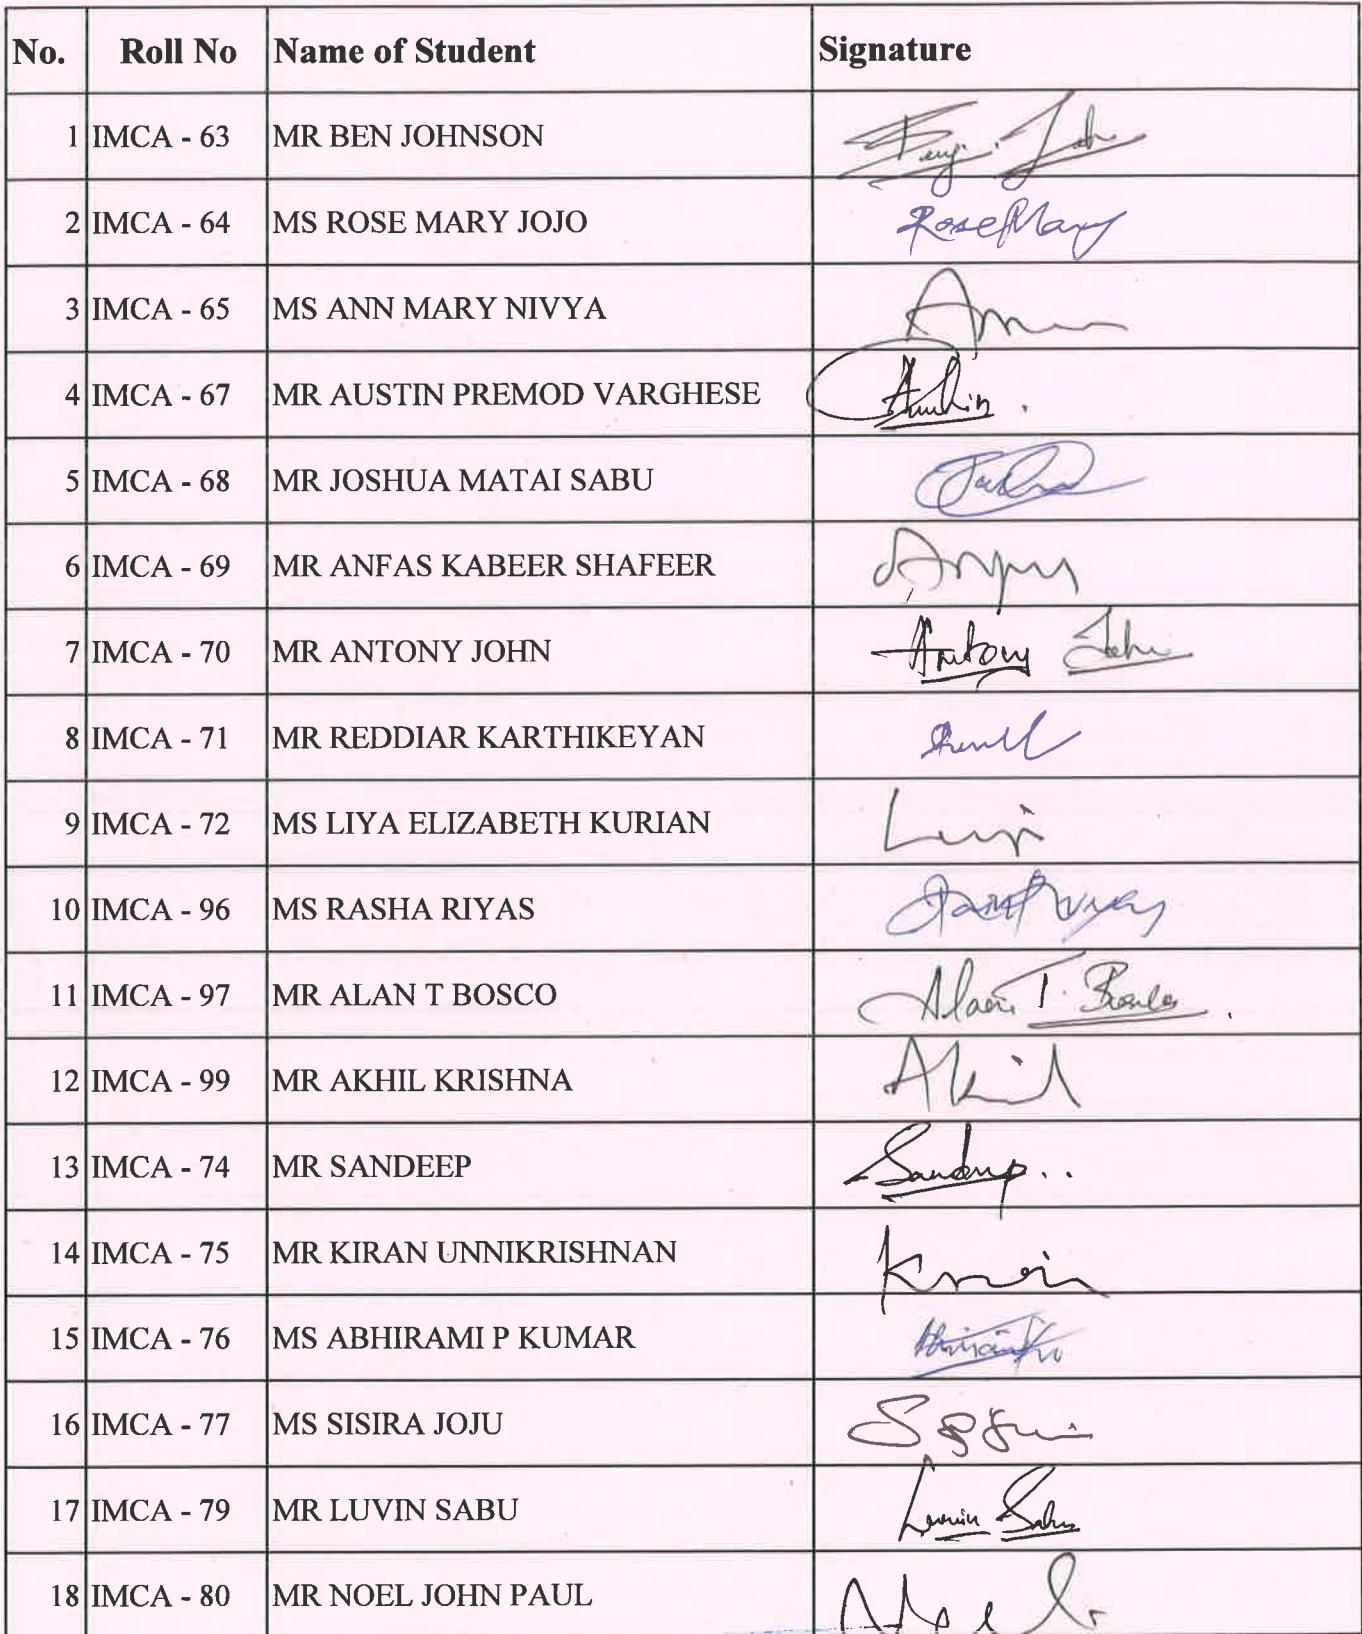 No. Roll No Name of Student Signature
1 IMCA - 63 MR BEN JOHNSON
2 IMCA - 64 MS ROSE MARY JOJO RoseMary
3 IMCA - 65 MS ANN MARY NIVYA
4 IMCA - 67 MR AUSTIN PREMOD VARGHESE
5 IMCA - 68 MR JOSHUA MATAI SABU
6 IMCA - 69 MR ANFAS KABEER SHAFEER
7 IMCA - 70 MR ANTONY JOHN Antony John
8 IMCA - 71 MR REDDIAR KARTHIKEYAN
9 IMCA - 72 MS LIYA ELIZABETH KURIAN
10 IMCA - 96 MS RASHA RIYAS
11 IMCA - 97 MR ALAN T BOSCO Alan T. Bosco
12 IMCA - 99 MR AKHIL KRISHNA Akhil
13 IMCA - 74 MR SANDEEP Sandeep..
14 IMCA - 75 MR KIRAN UNNIKRISHNAN
15 IMCA - 76 MS ABHIRAMI P KUMAR
16 IMCA - 77 MS SISIRA JOJU
17 IMCA - 79 MR LUVIN SABU Luvin Sabu
18 IMCA - 80 MR NOEL JOHN PAUL